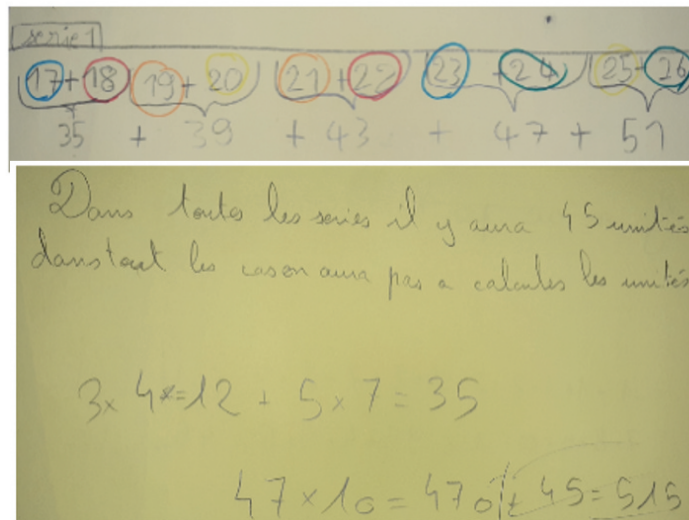 serie 1
17+18 19+20 21+22 23 +24 25+26
35 + 39 + 43 + 47 + 51
Dans toutes les series il y aura 45 unités
dans tout les cas on aura pas a calculer les unités
3x 4x=12 + 5x7=35
47x10=470 + 45=515